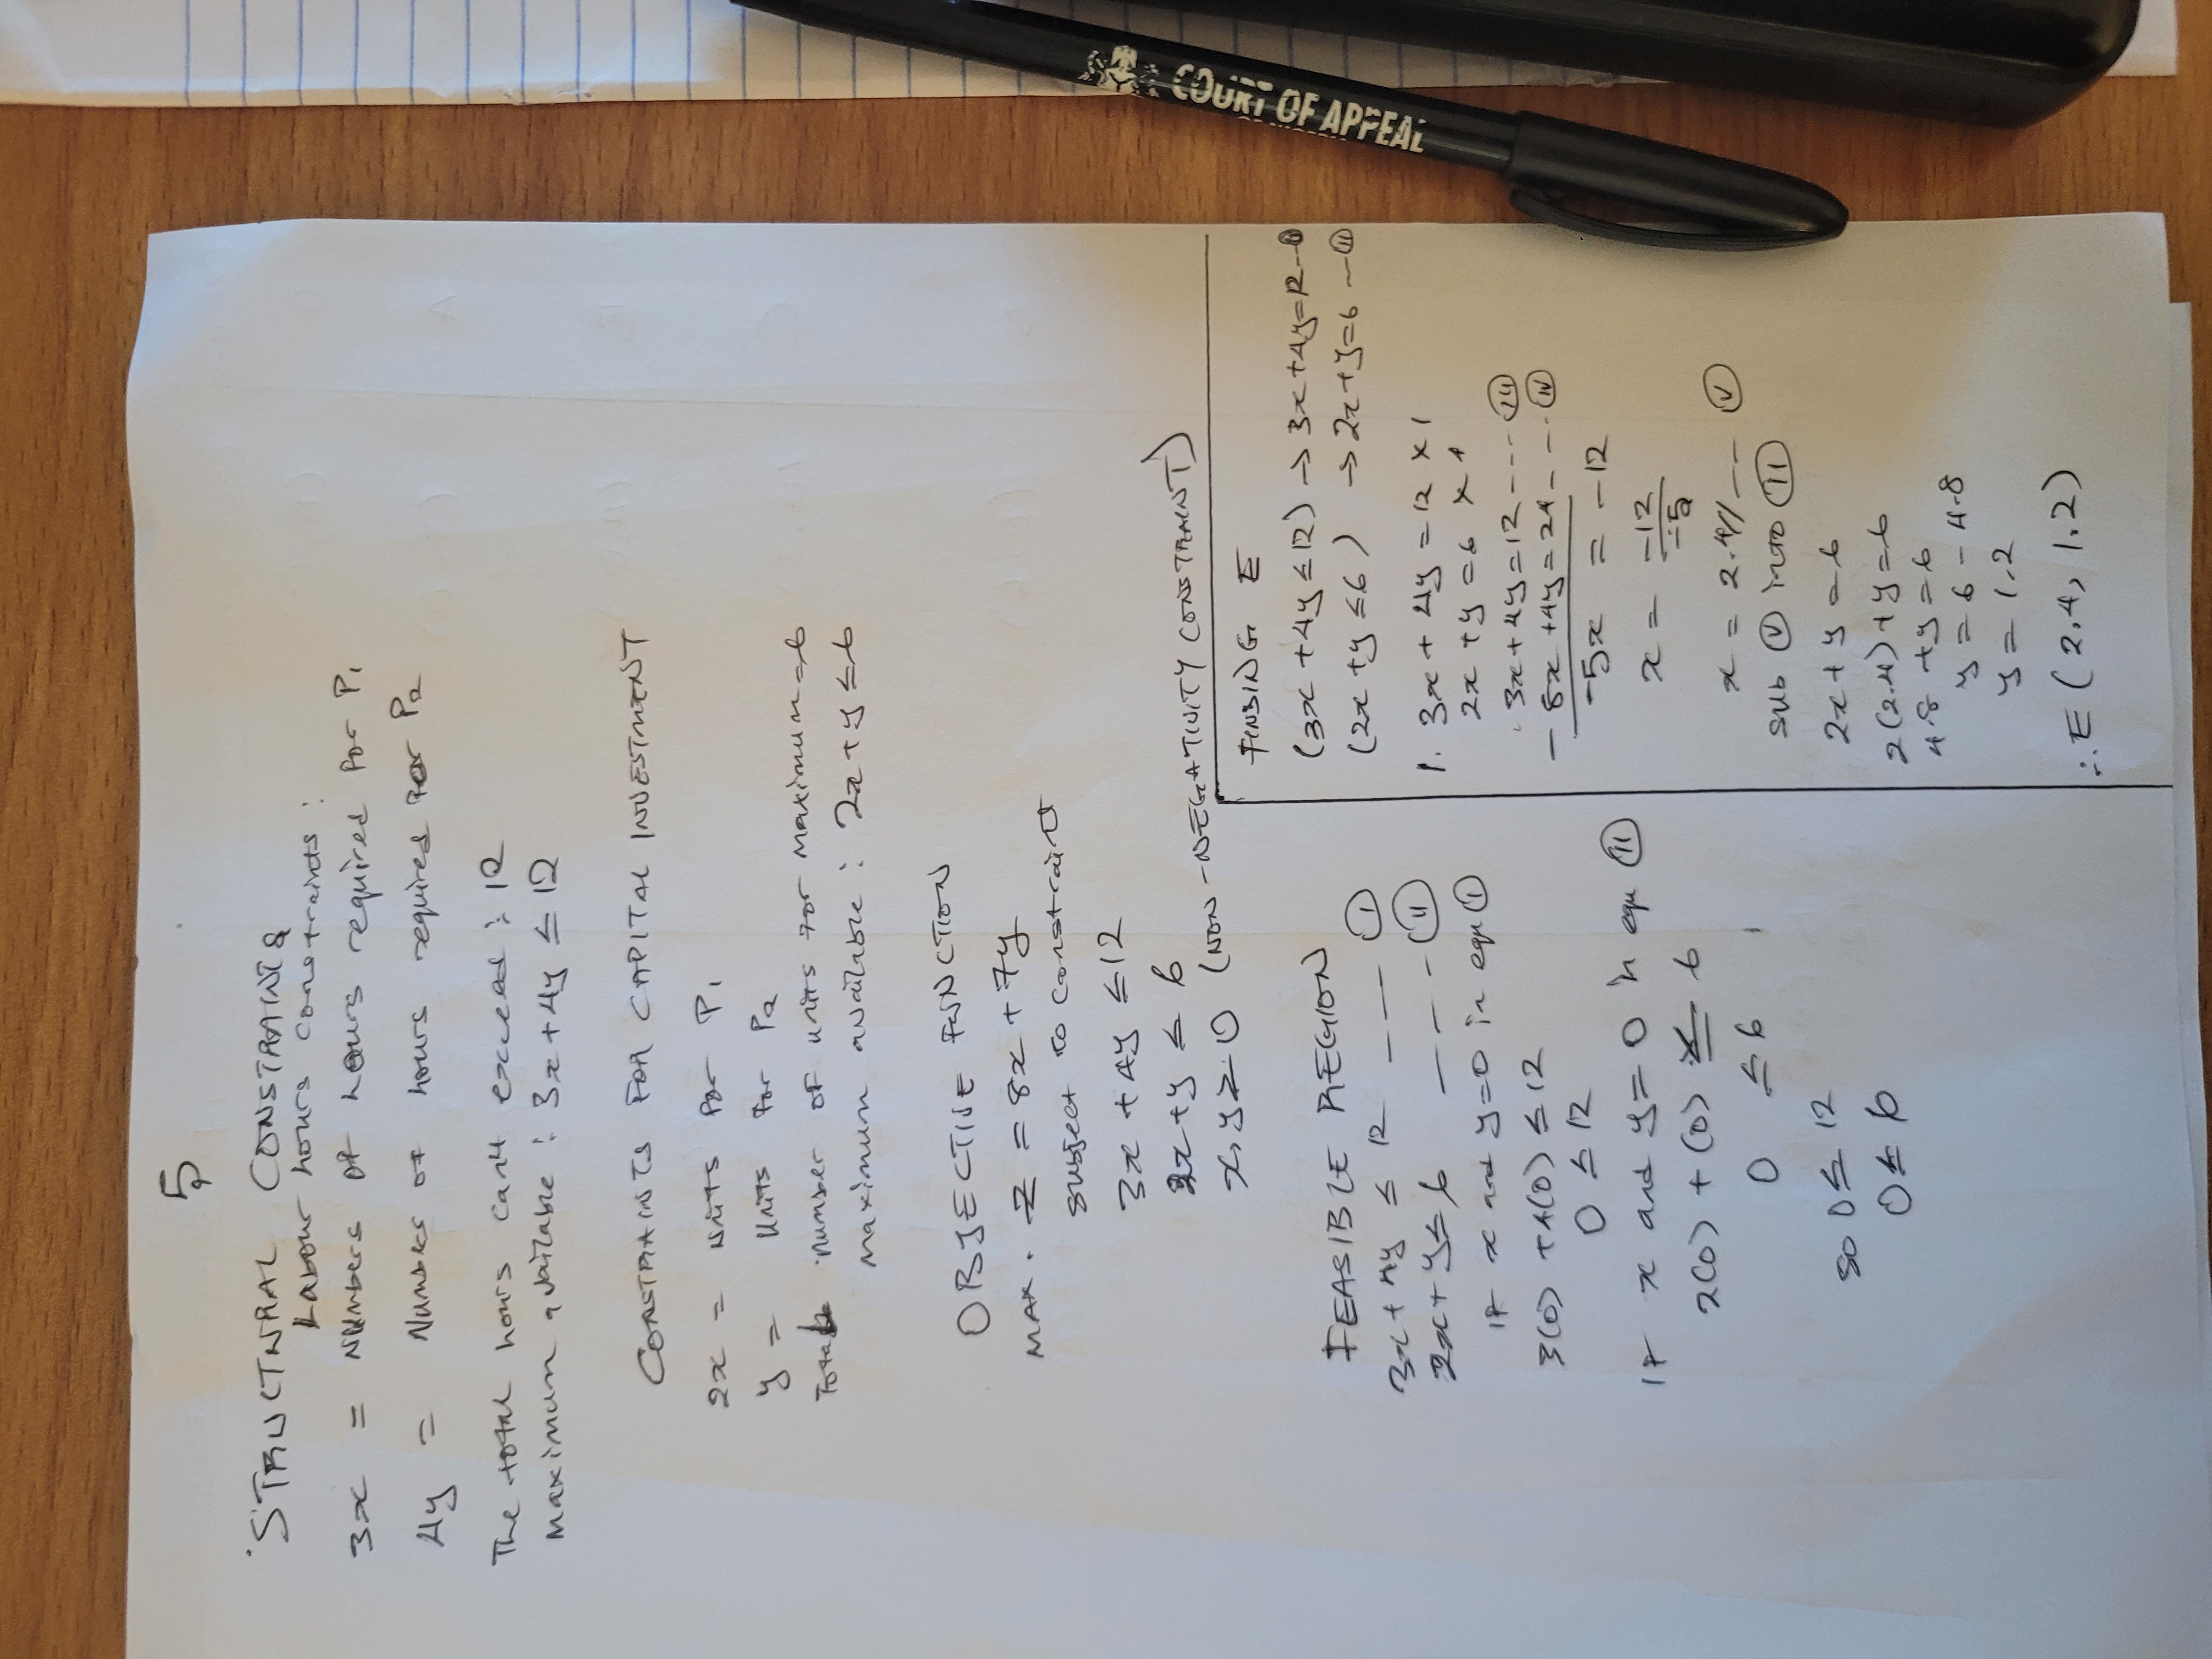 5
STRUCTURAL CONSTRAINTS
Labour hours constraints:
3x = Numbers of hours required for P₁
4y = Number of hours required for P₂
The total hours can't exceed: 12
maximum available: 3x+4y ≤ 12
CONSTRAINTS FOR CAPITAL INVESTMENT
2x = units for P₁
y = Units for P₂
Total number of units for maximum = 6
maximum available: 2x+y ≤ 6
OBJECTIVE FUNCTION
MAX. Z = 8x + 7y
subject to constraint
3x + 4y ≤ 12
2x+y ≤ 6
x, y ≥ 0 (NON-NEGATIVITY CONSTRAINT)
FEASIBLE REGION
3x + 4y ≤ 12 --- (I)
2x + y ≤ 6 --- (II)
If x and y=0 in equ (I)
3(0) + 4(0) ≤ 12
0 ≤ 12
If x and y = 0 in equ (II)
2(0) + (0) ≤ 6
0 ≤ 6
so 0 ≤ 12
0 ≤ 6
FINDING E
(3x + 4y ≤ 12) → 3x+4y=12 -- (I)
(2x + y ≤ 6) → 2x+y=6 -- (II)
1. 3x + 4y = 12 x 1
2x + y = 6 x 4
3x + 4y = 12 --- (III)
- 8x + 4y = 24 --- (IV)
-5x = -12
x = -12/-5
x = 2.4// -- (V)
sub (V) into (II)
2x + y = 6
2(2.4) + y = 6
4.8 + y = 6
y = 6 - 4.8
y = 1.2
∴ E (2.4, 1.2)
COURT OF APPEAL